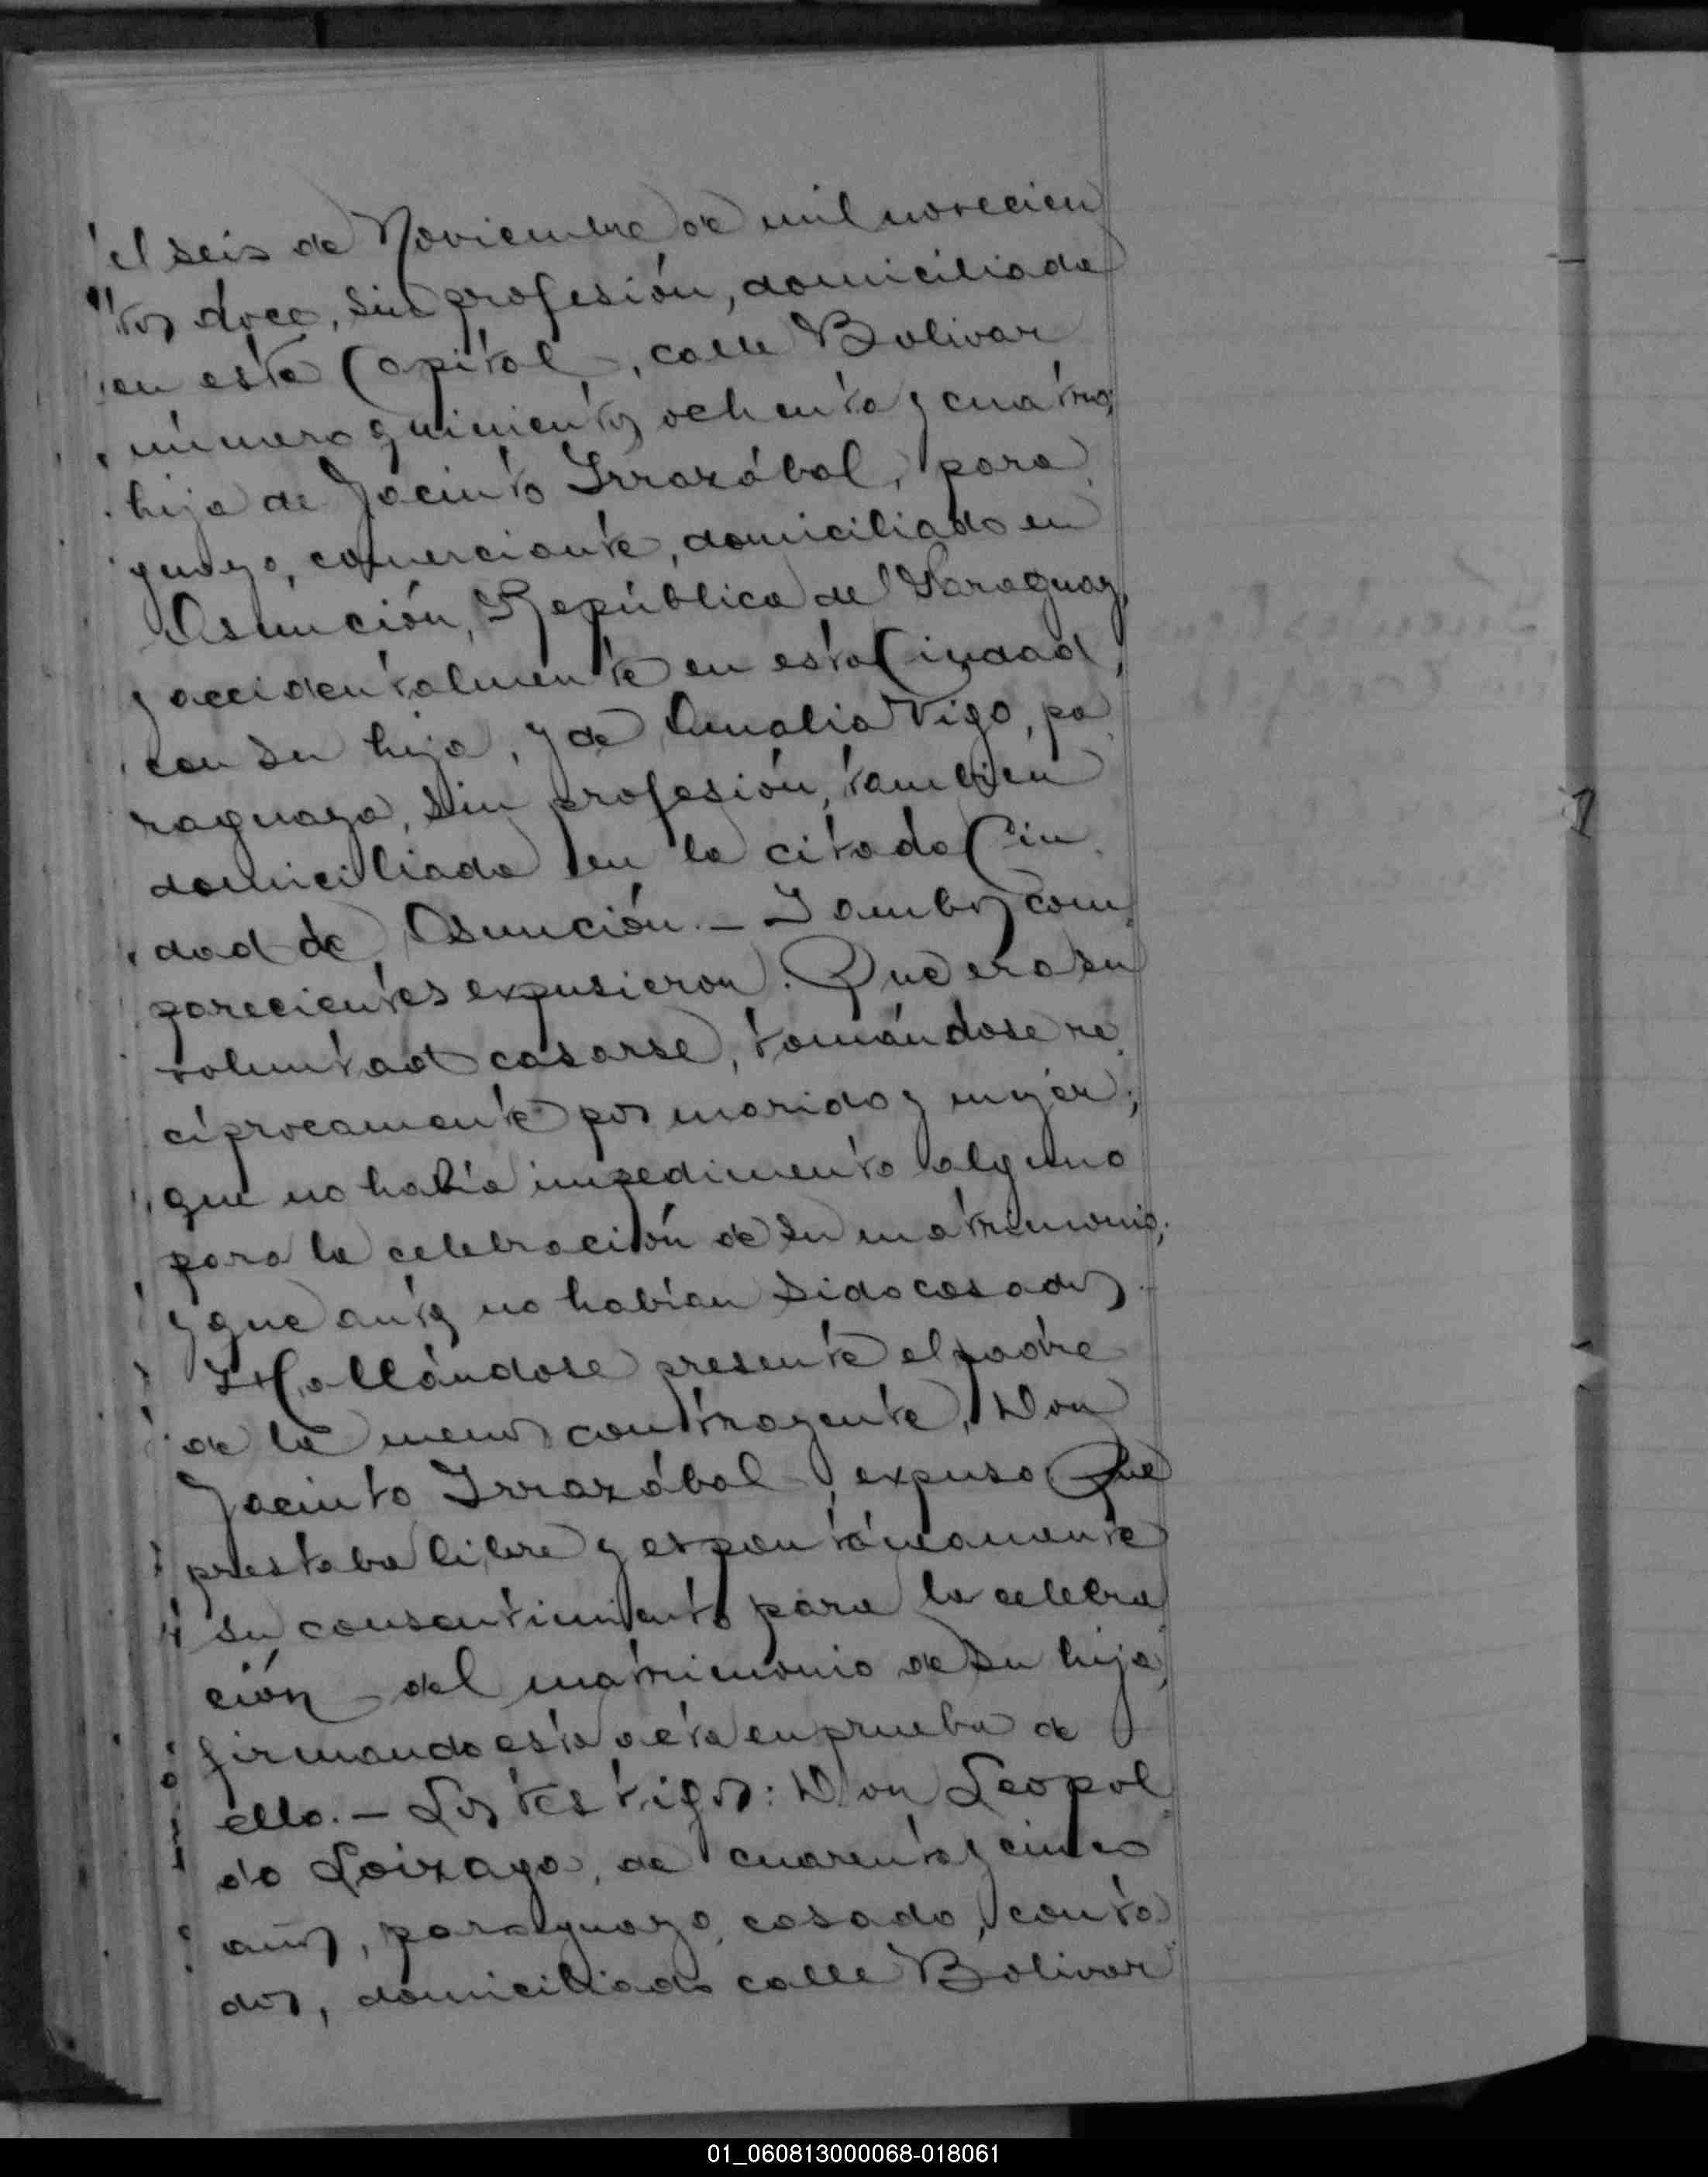 el seis de Noviembre de mil novecien
tos doce, sin profesión, domiciliada
en esta Capital, calle Bolivar
número quinientos ochenta y cuatro;
hija de Jacinto Irrazábal, para
guayo, comerciante, domiciliado en
Asunción, República del Paraguay,
y accidentalmente en esta Ciudad,
con su hija, y de Amalia Vigo, pa
raguaya, sin profesión, también
domiciliada en la citada Ciu
dad de Asunción. - Y ambos com
parecientes expusieron: Que era su
voluntad casarse, tomándose re
cíprocamente por marido y mujer;
que no había impedimento alguno
para la celebración de su matrimonio;
y que antes no habían sido casados.
Y Hallándose presente el padre
de la menor contrayente, Don
Jacinto Irrazábal, expuso: Que
prestaba libre y expontáneamente
su consentimiento para la celebra
ción del matrimonio de su hija,
firmando esta acta en prueba de
ello. - Los testigos: Don Leopol
do Loizaga, de cuarenta y cinco
años, paraguayo, casado, conta
dor, domiciliado calle Bolivar
01_060813000068-018061